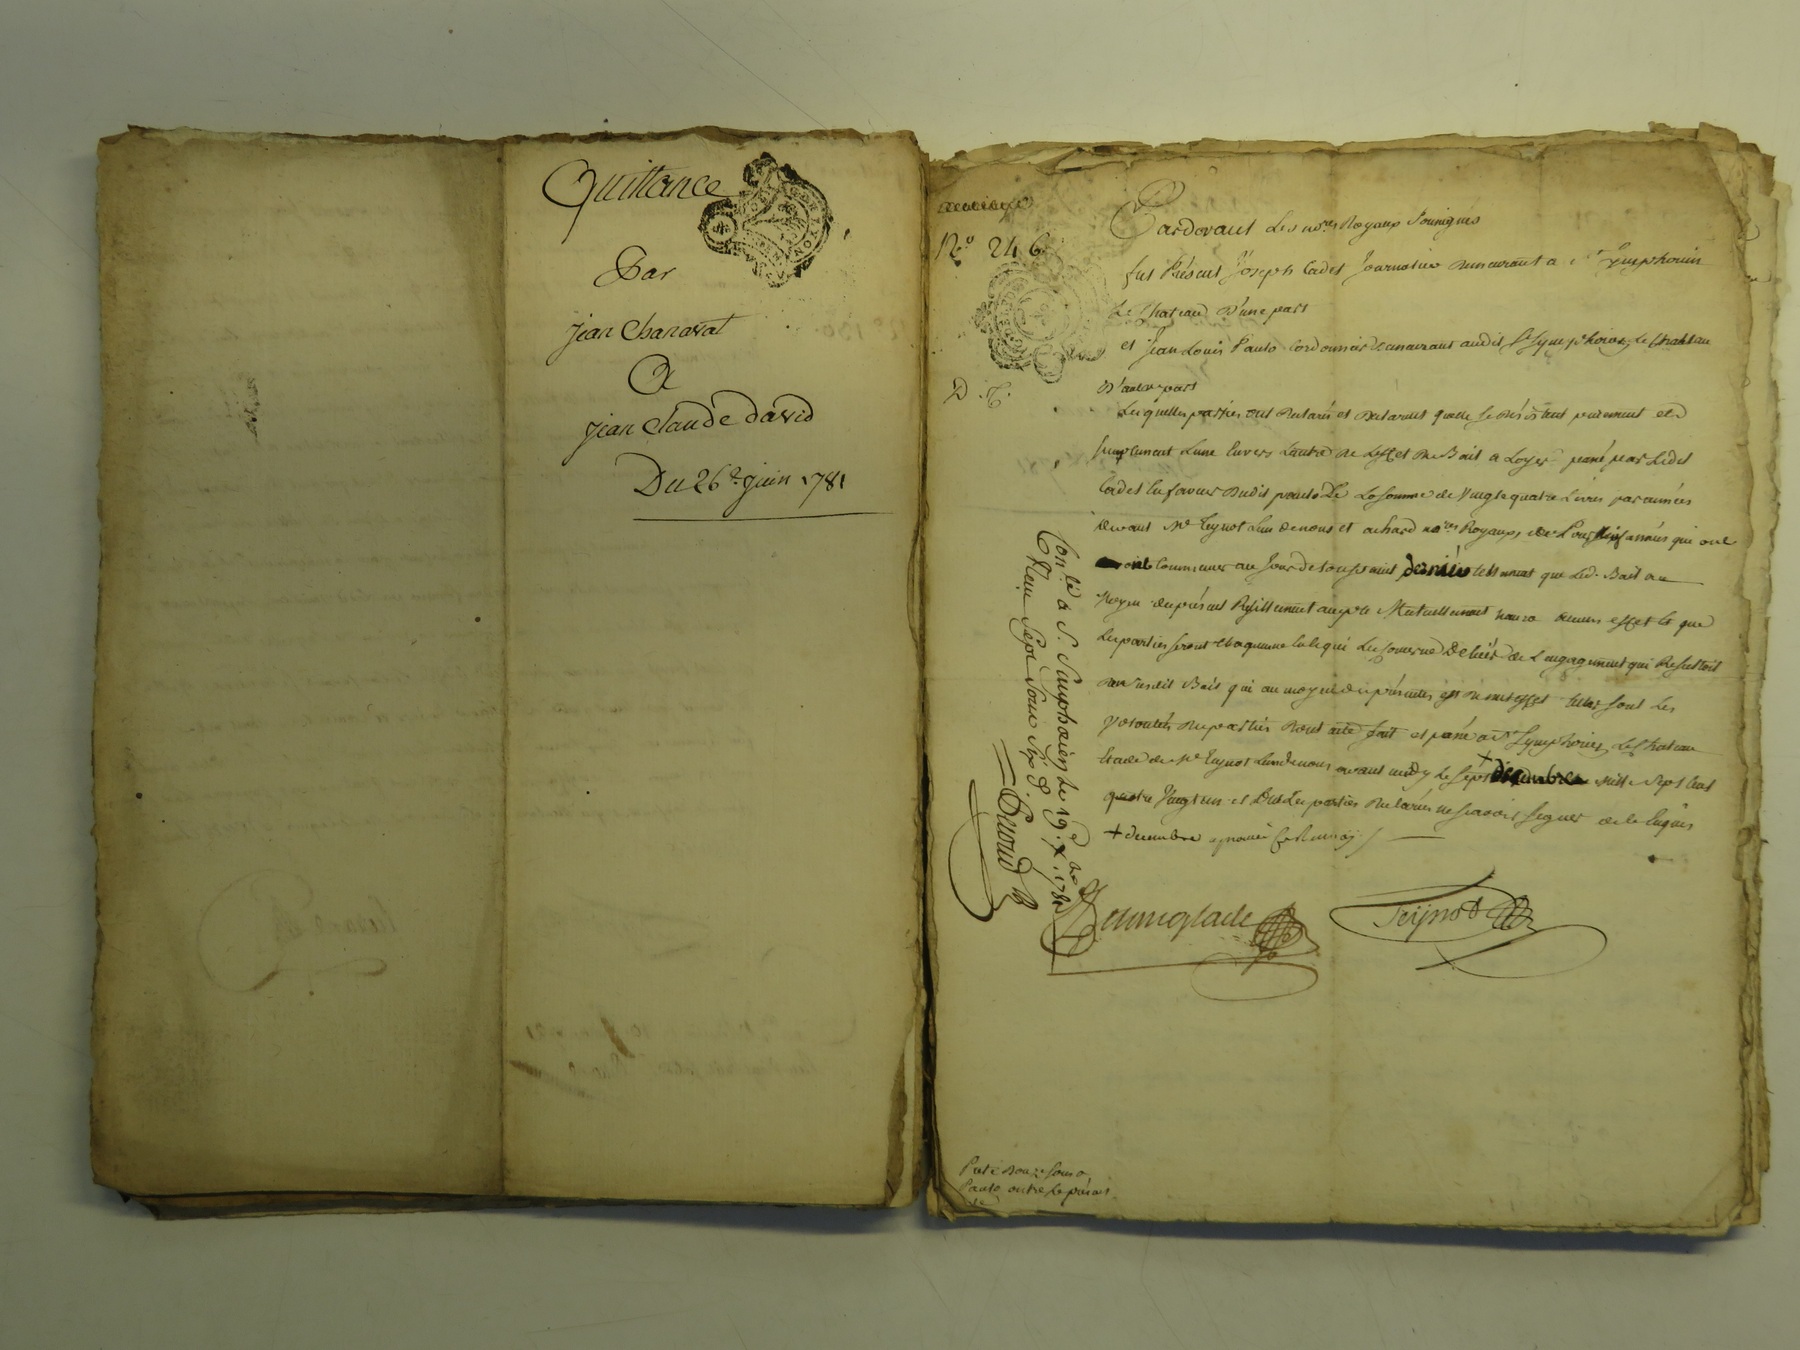 Quittance
Par
jean Chanavat
A
jean Claude david
Du 26e juin 1781
No 246
D. T.
Pardevant les nores Royaux soussignés
fut Présent Joseph Cadet Journalier demeurant a St Symphorien
le Chateau d'une part
et Jean Louis Pauto Cordonnier demeurant audit St Symphorien le Chateau
d'autre part
Lesquelles parties ont declaré et declarent quelle se désistent purement et
simplement lune envers lautre de leffet du Bail a Loyer passé par ledit
Cadet en faveur dudit pauto de la somme de vingt quatre Livres par années
devant Me Teynot lun de nous et achard nores Royaux, et pour années qui ont
commencer au jour de toussaint dernier tellement que led. Bail au
moyen du présent Resillement Mutuellement naura aucun effet et que
les parties seront chaqune en ce qui les concerne de l'engagement qui Resultoit
dudit Bail qui au moyen des présentes est de nul effet telles sont les
volontés des parties Dont acte fait et passé a St Symphorien le Chateau
Etude de Me Teynot lun de nous avant midy le sept + decembre mille sept cent
quatre vingt un et ont les parties declarées ne scavoir signer de ce Enquis
+ decembre
Delmeglade
Teynot
Conlé à S. Simphorien le 19e xbre 1781
Reçu sept sous six d.
Pauto outre le présent